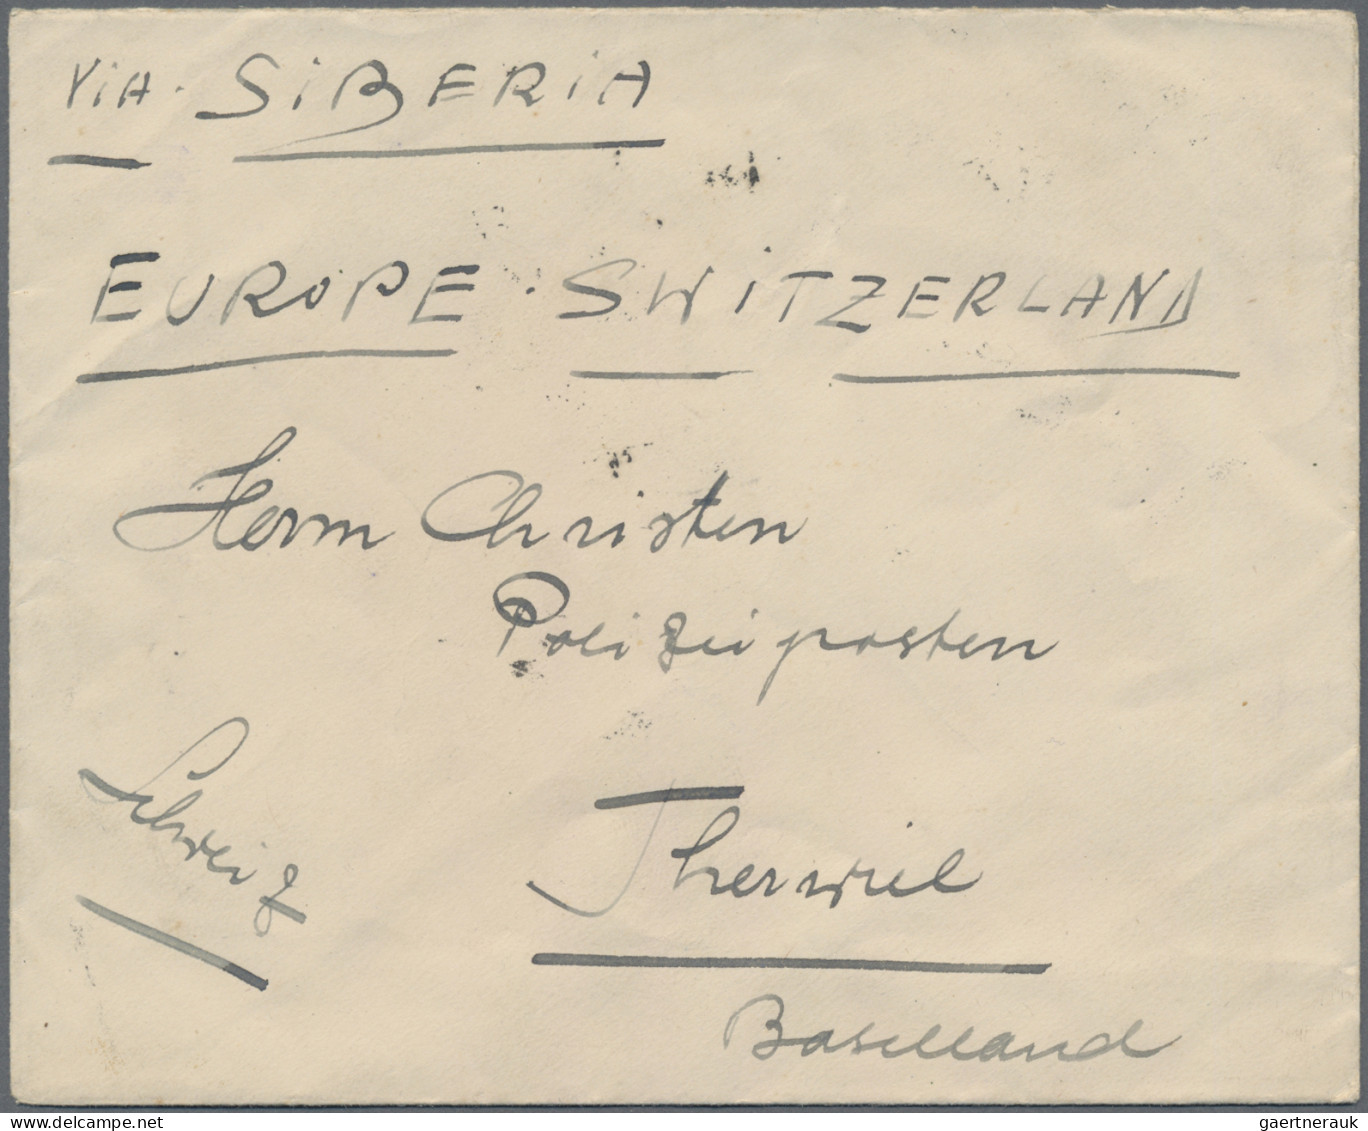 ViA · SiBERiA
EUROPE · SWiTZERLAND
Herrn Christen
Polizeiposten
Schweiz
Therwiel
Baselland
gaertnerauk